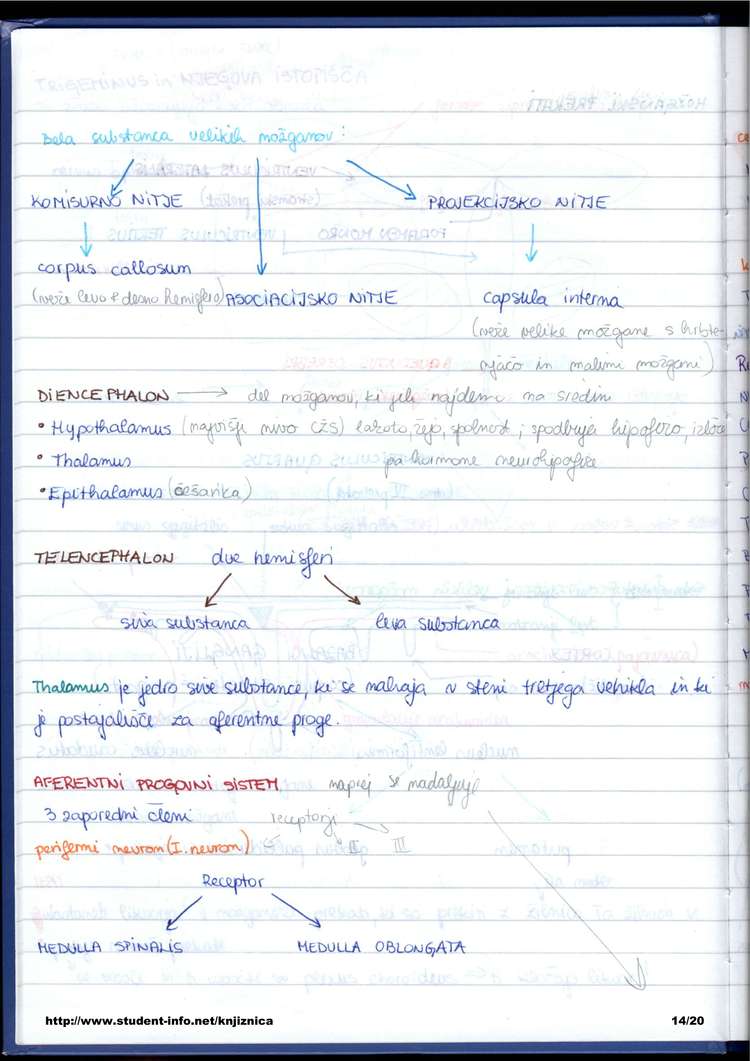 Bela substanca velikih možganov:
KOMISURNO NITJE
PROJEKCIJSKO NITJE
corpus callosum
(veže levo + desno hemisfero)
ASOCIACIJSKO NITJE
capsula interna
(veže velike možgane s hrbte-
njačo in malimi možgani)
DIENCEPHALON → del možganov, ki jih najdemo na sredin
• Hypothalamus (najvišji nivo CŽS) lakoto, žejo, spolnost; spodbuja hipofizo, izloča
• Thalamus pa hormone neurohipofize
• Epithalamus (češarika)
TELENCEPHALON dve hemisferi
siva substanca
bela substanca
Thalamus je jedro sive substance, ki se nahaja v steni tretjega vehikla in ki
je postajališče za aferentne proge.
AFERENTNI PROGOVNI SISTEM, naprej se nadaljuje
3 zaporedni členi receptorji
periferni nevron (I. nevron) II III
Receptor
MEDULLA SPINALIS
MEDULLA OBLONGATA
http://www.student-info.net/knjiznica
14/20